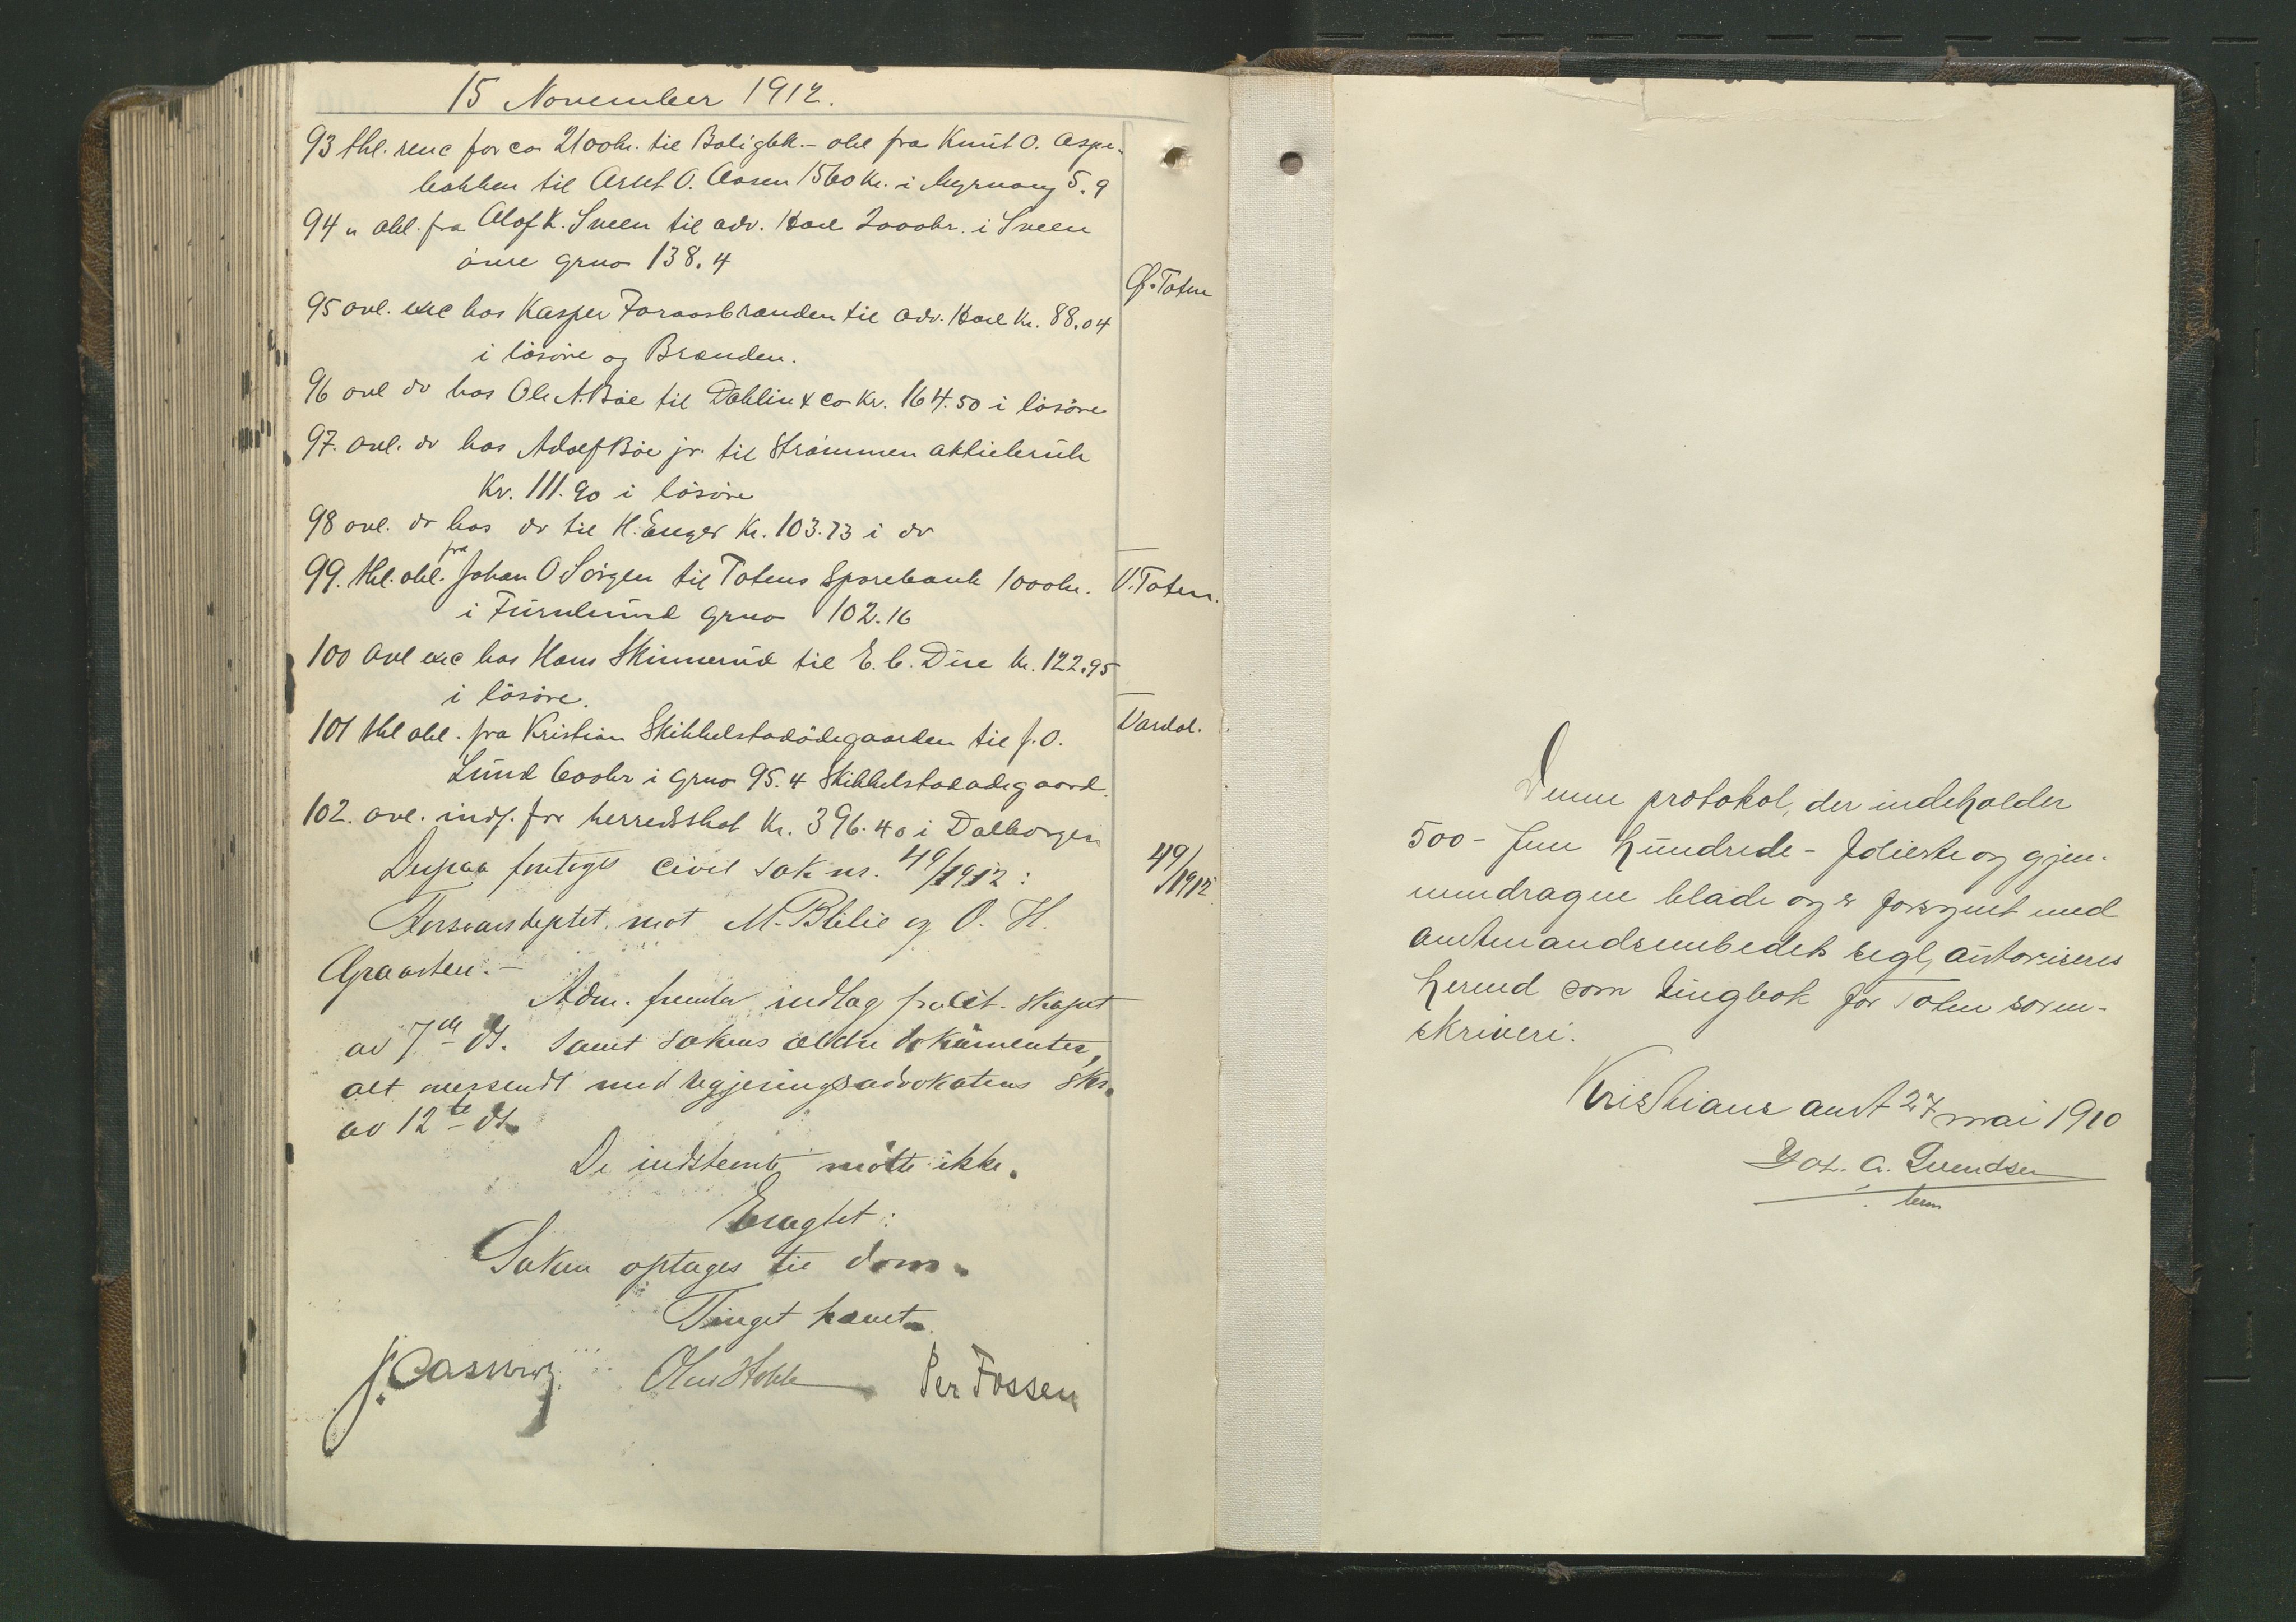 15 November 1912.
93 thl. renc for ca 2100kr. til Boligbk. - obl fra Knut O. Aspe-
bakken til Arnt O. Aasen 1560 kr. i Myrvang 5.9
94 " obl. fra Olof K. Sveen til adv. Hoel 2000kr. i Sveen
övre grno 138.4
Ø. Toten
95 avl. exec hos Kasper Foraasbrænden til adv. Hoel kr. 88.04
i lösöre og Brænden.
96 avl do hos Ole A. Böe til Dahlin & Co kr. 164.50 i lösöre
97. avl. do hos Adolf Böe jr. til Strömmen aktiebruk
Kr. 111.90 i lösöre
98 avl. do hos do til H. Enger Kr. 103.73 i do
99. thl. obl. fra Johan O Sörgen til Totens Sparebank 1000kr.
V. Toten.
i Furulund grno 102.16
100 avl exec hos Hans Skinnerud til E. C. Due kr. 122.95
i lösöre.
101 thl obl. fra Kristian Skikkelstadödegaarden til J. O.
Vardal.
Lund 600kr i grno 95.4 Skikkelstadödegaard.
102. avl. indf. for herredsskat kr. 396.40 i Dalborgen
Derpaa foretages civil sak nr. 49/1912:
49/1912
Forsvarsdeptet. mot M. Blilie og O. H.
Graasten. -
Adm. fremla indlag fra cit. skapet
av 7de ds. samt sakens ældre dokumenter,
alt oversendt med regjeringsadvokatens skr.
av 12te ds.
De indstevnte mötte ikke.
Eragtet:
Saken optages til dom.
Tinget hævet.
J. Aasmoe Per Fossen
Denne protokol, der indeholder
500 - fem hundrede - folierte og gjen-
nemdragne blade og er forsynet med
amtmandsembedets segl, autoriseres
herved som tingbok for Toten soren-
skriveri.
Kristians amt 27 mai 1910
Joh. A. Svendsen